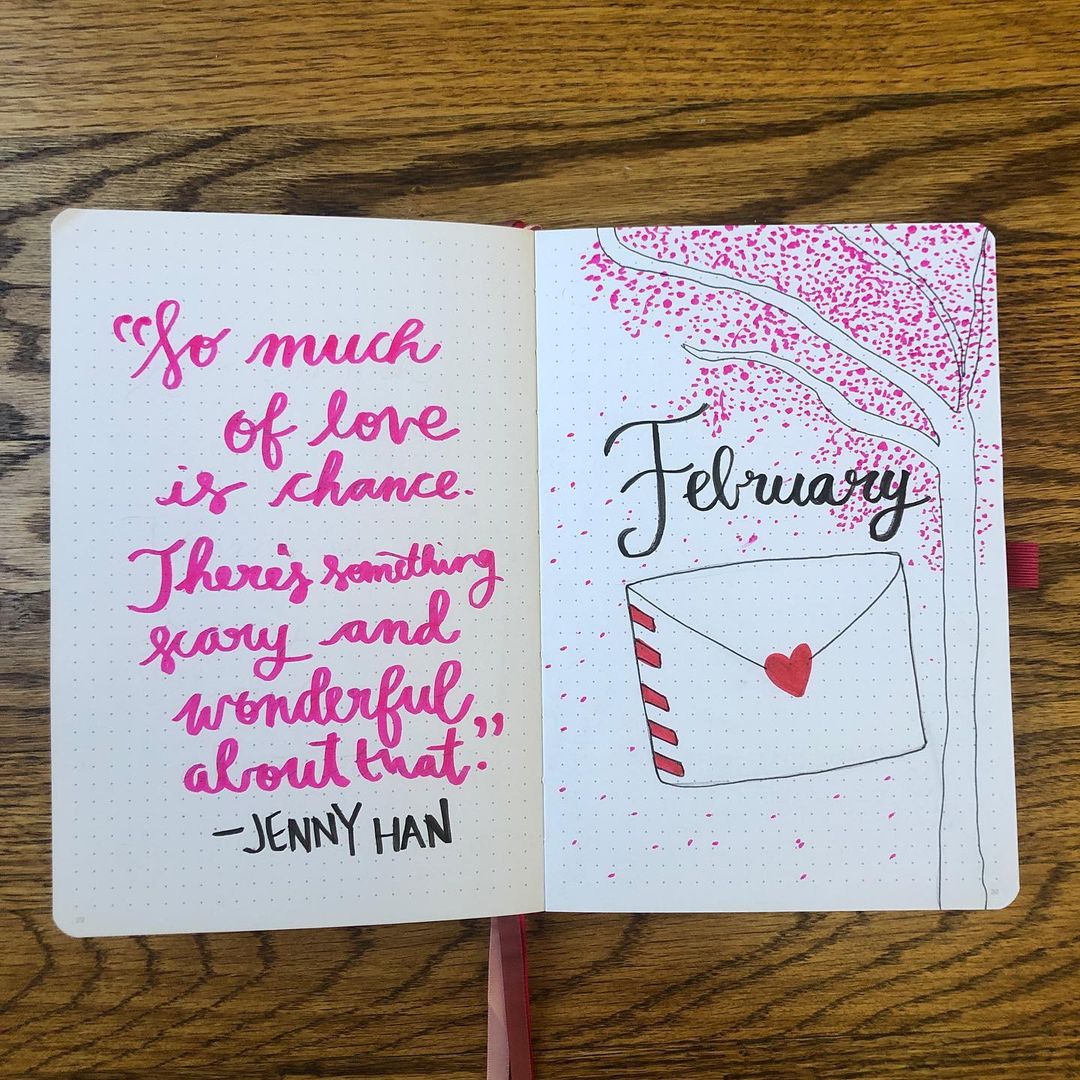 “So much
of love
is chance.
There's something
scary and
wonderful
about that.”
-JENNY HAN
February